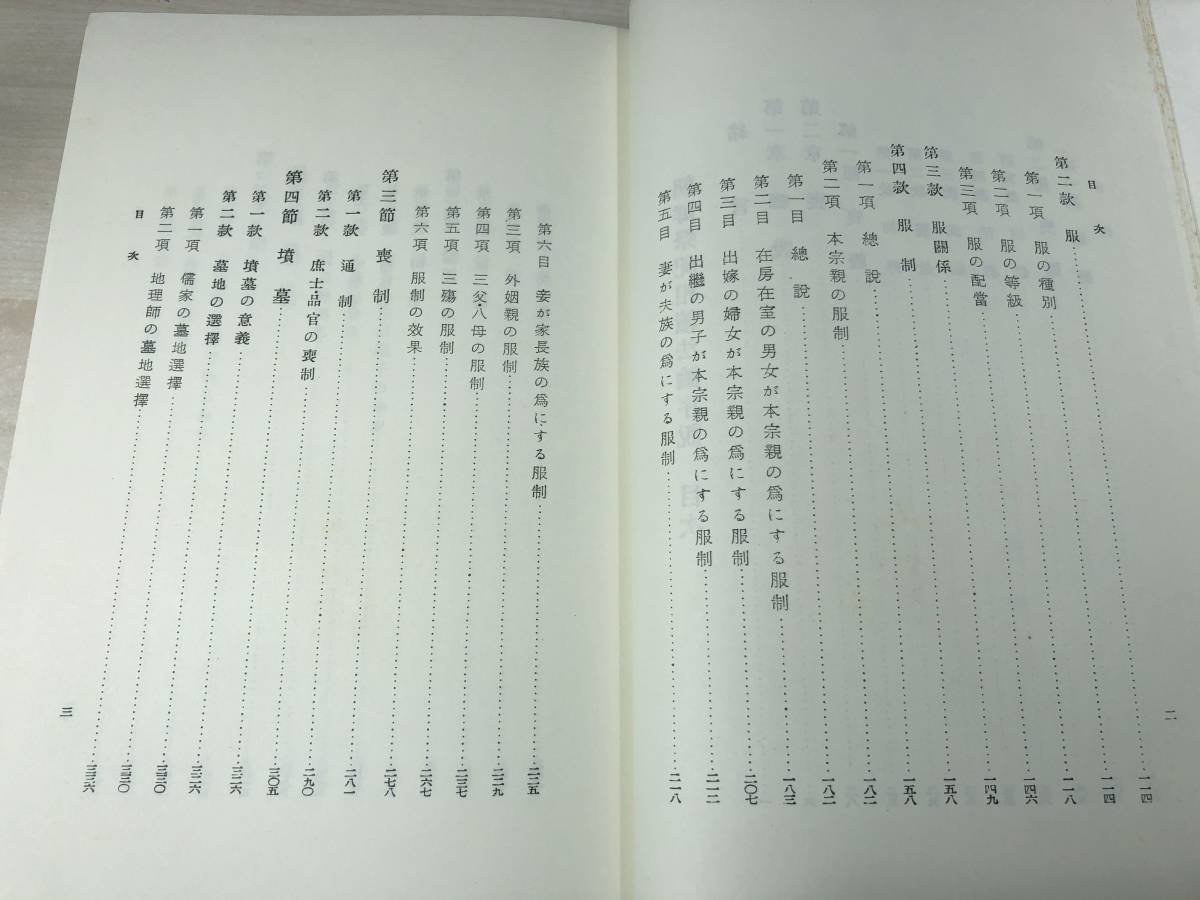 目次
第二款　服……一一四
第一項　服の種別……一一四
第二項　服の等級……一一八
第三項　服の配當……一四六
第三款　服關係……一四九
第四款　服制……一五八
第一項　總說……一五八
第二項　本宗親の服制……一八二
第一目　總說……一八二
第二目　在房在室の男女が本宗親の爲にする服制……一八三
第三目　出嫁の婦女が本宗親の爲にする服制……二〇七
第四目　出繼の男子が本宗親の爲にする服制……二一二
第五目　妻が夫族の爲にする服制……二一八
二
第六目　妾が家長族の爲にする服制……二二五
第三項　外姻親の服制……二二九
第四項　三父・八母の服制……二三七
第五項　三殤の服制……二六七
第六項　服制の效果……二七八
第三節　喪制……二八一
第一款　通制……二九〇
第二款　庶士・品官の喪制……三〇五
第四節　墳墓……三二六
第一款　墳墓の意義……三二六
第二款　墓地の選擇……三三〇
第一項　儒家の墓地選擇……三三〇
第二項　地理師の墓地選擇……三三六
目次
三